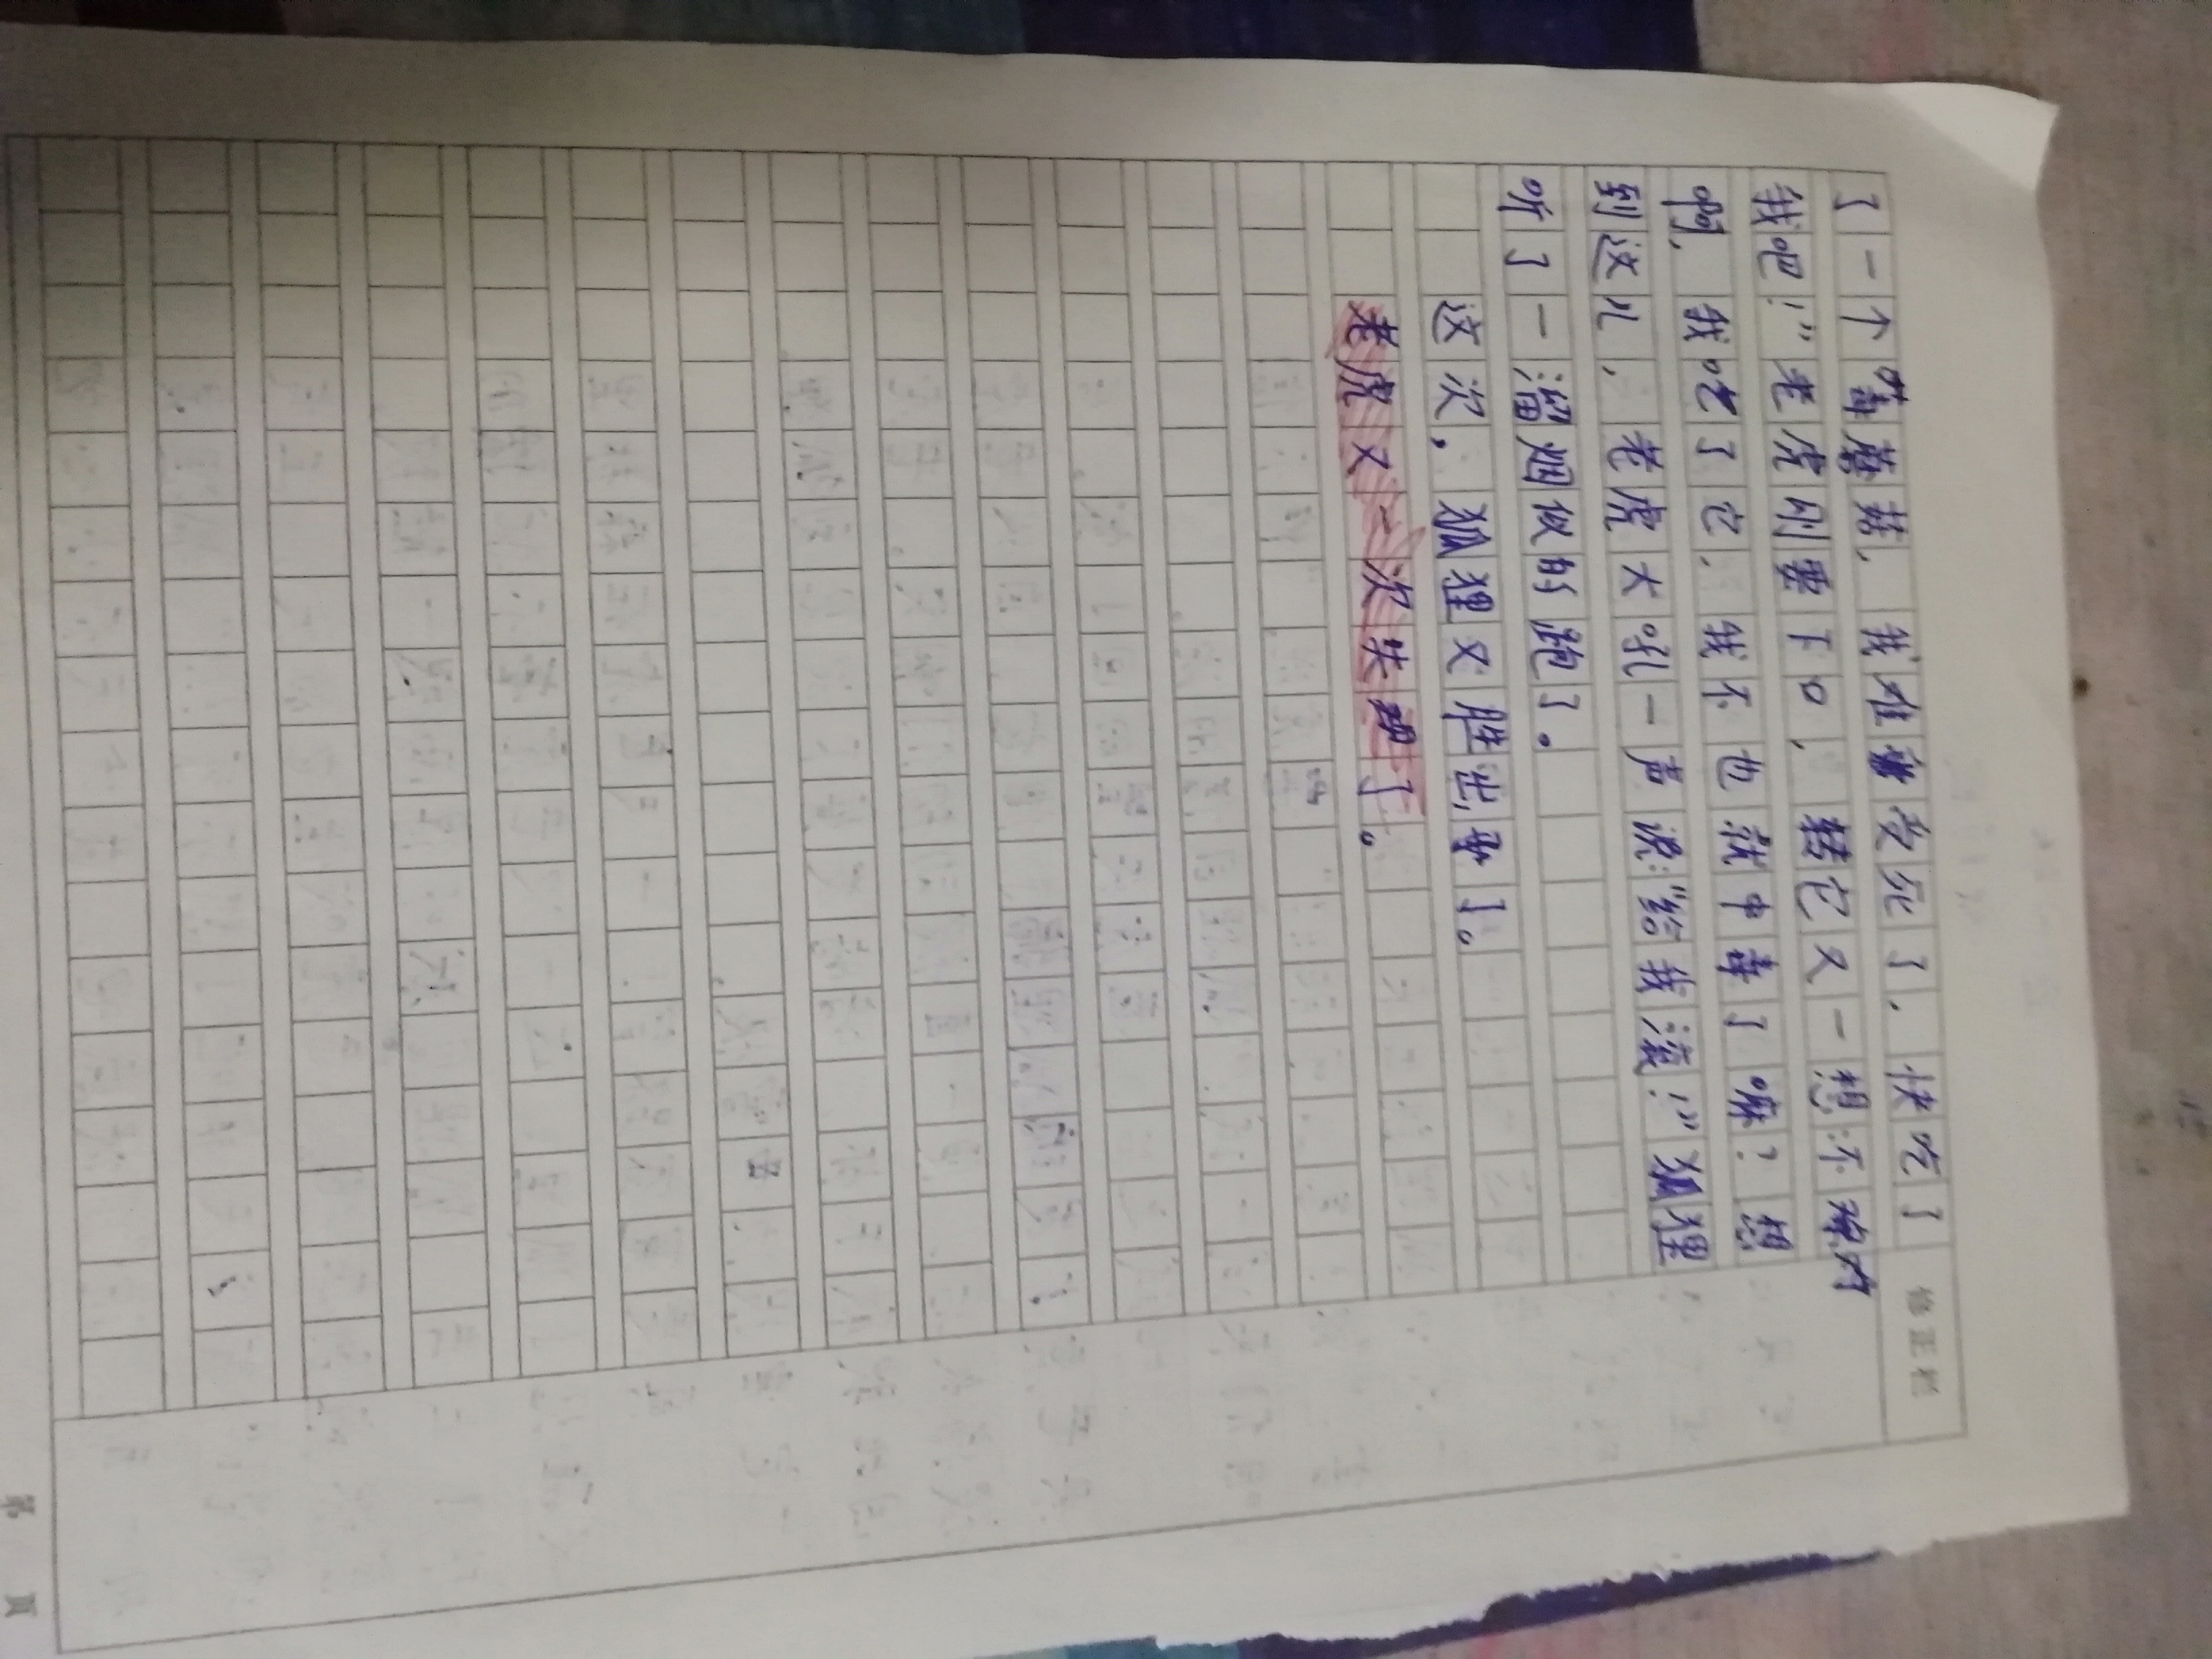 了一个毒蘑菇，我难受死了，快吃了
我吧！”老虎刚要下口，转它又一想：不对
啊，我吃了它，我不也就中毒了嘛？想
到这儿，老虎大吼一声说：“给我滚！”狐狸
听了一溜烟似的跑了。
这次，狐狸又胜出了。
老虎又一次失败了。
修正栏
第 页